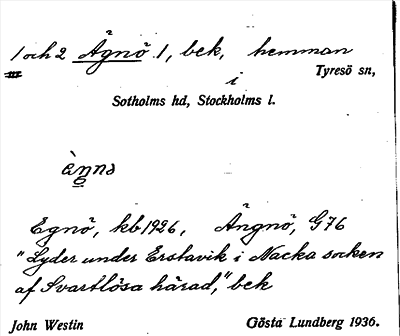 1 och 2 Ägnö 1, bek, hemman
i
Tyresö sn,
Sotholms hd, Stockholms l.
ànnə
Egnö, kb 1926, Ängnö, G76
"Lyder under Erstavik i Nacka socken
af Svartlösa härad," bek
John Westin
Gösta Lundberg 1936.